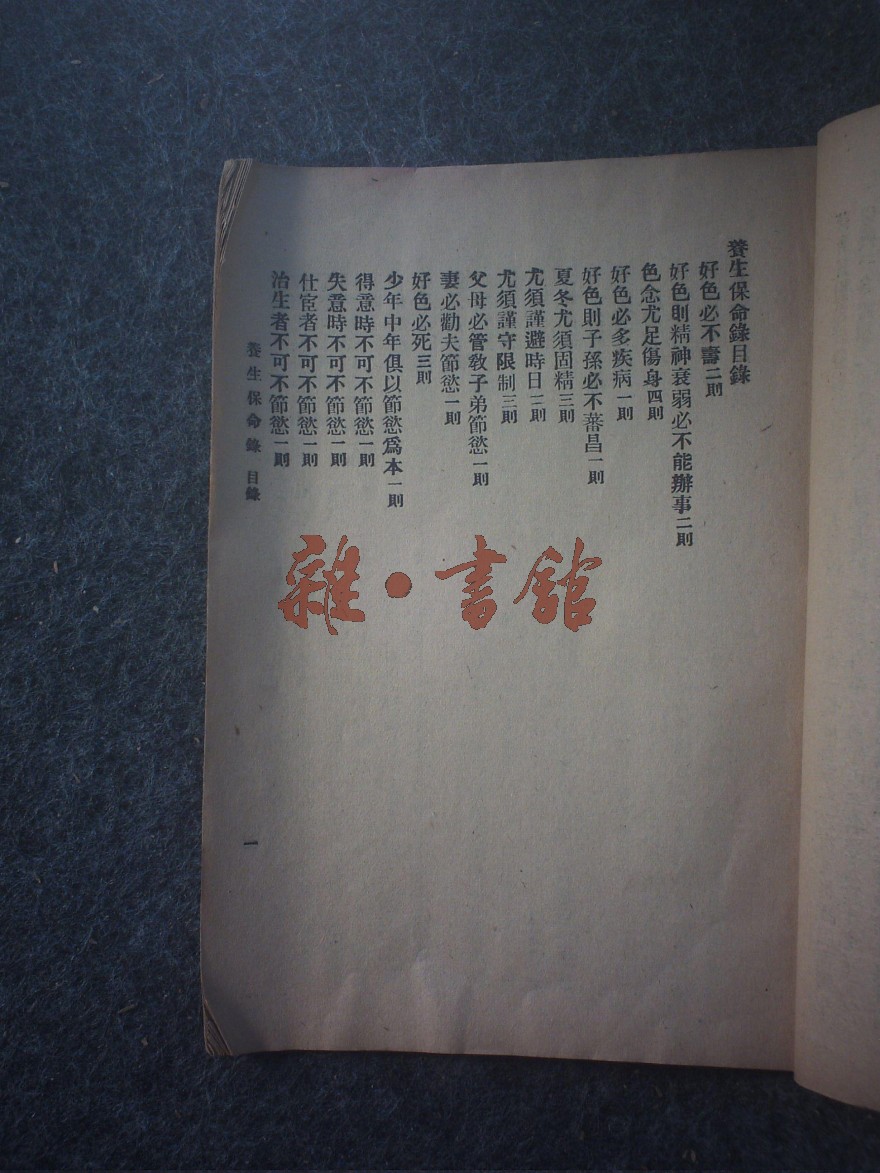 養生保命錄目錄
好色必不壽二則
好色則精神衰弱必不能辦事二則
色念尤足傷身四則
好色必多疾病一則
好色則子孫必不蕃昌一則
夏冬尤須固精三則
尤須謹避時日二則
尤須謹守限制三則
父母必管敎子弟節慾一則
妻必勸夫節慾一則
好色必死三則
少年中年俱以節慾爲本一則
得意時不可不節慾一則
失意時不可不節慾一則
仕宦者不可不節慾一則
治生者不可不節慾一則
養生保命錄 目錄
一
雜·書館